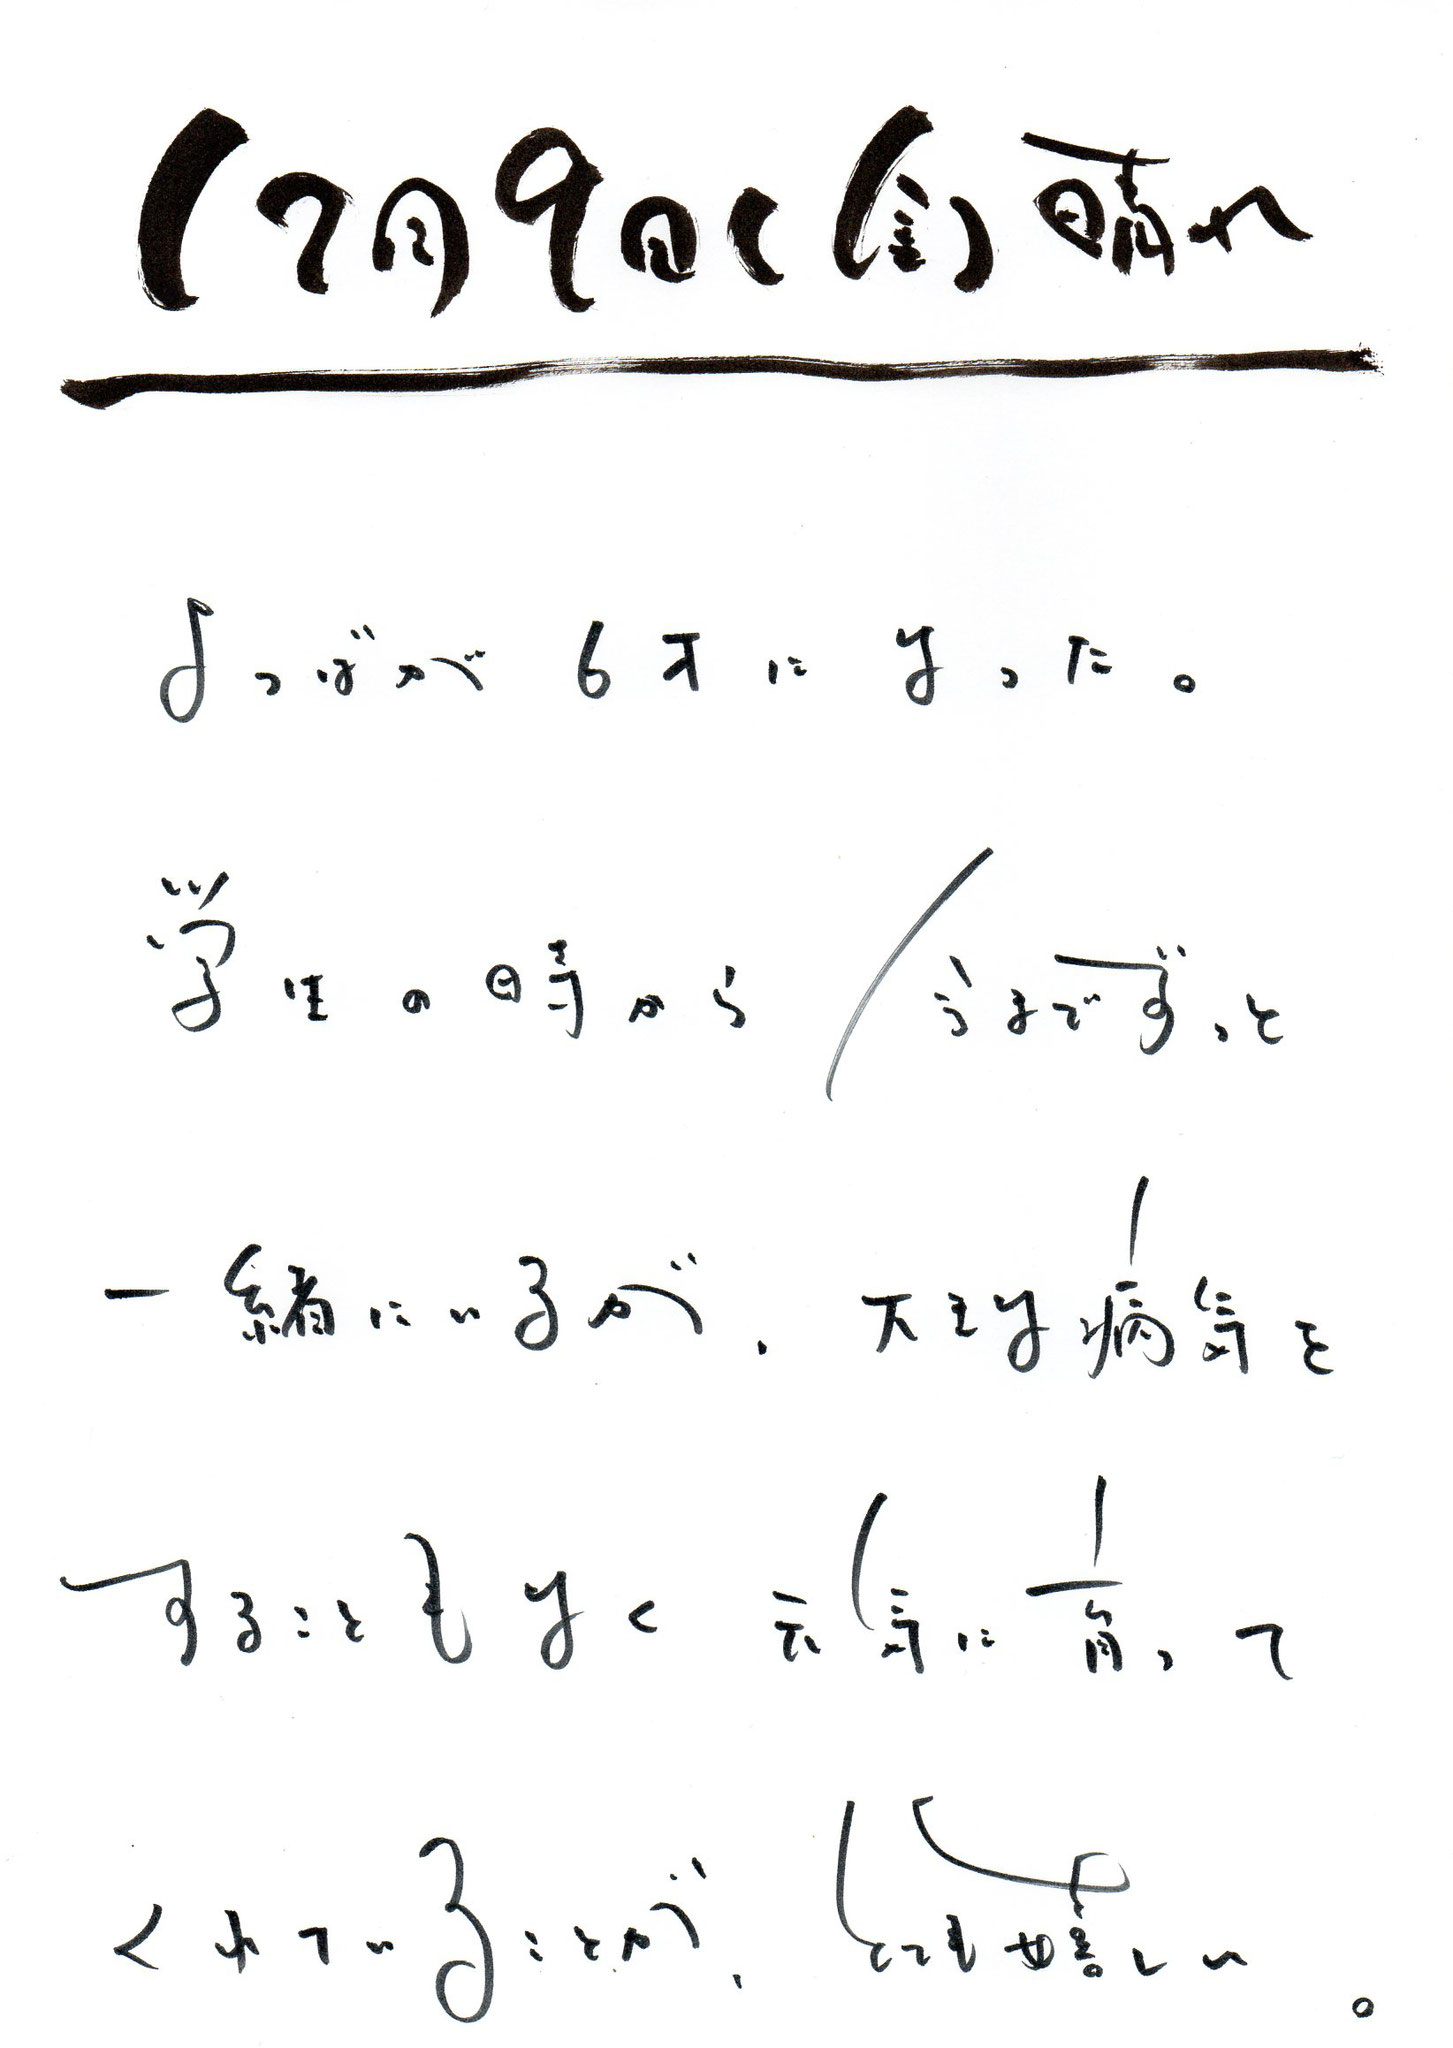 7月9日(金)晴れ
よつばが 6才に なった。
学生の時から 今までずっと
一緒にいるが、大きな病気を
することもなく 元気に育って
くれていることが、とても嬉しい。